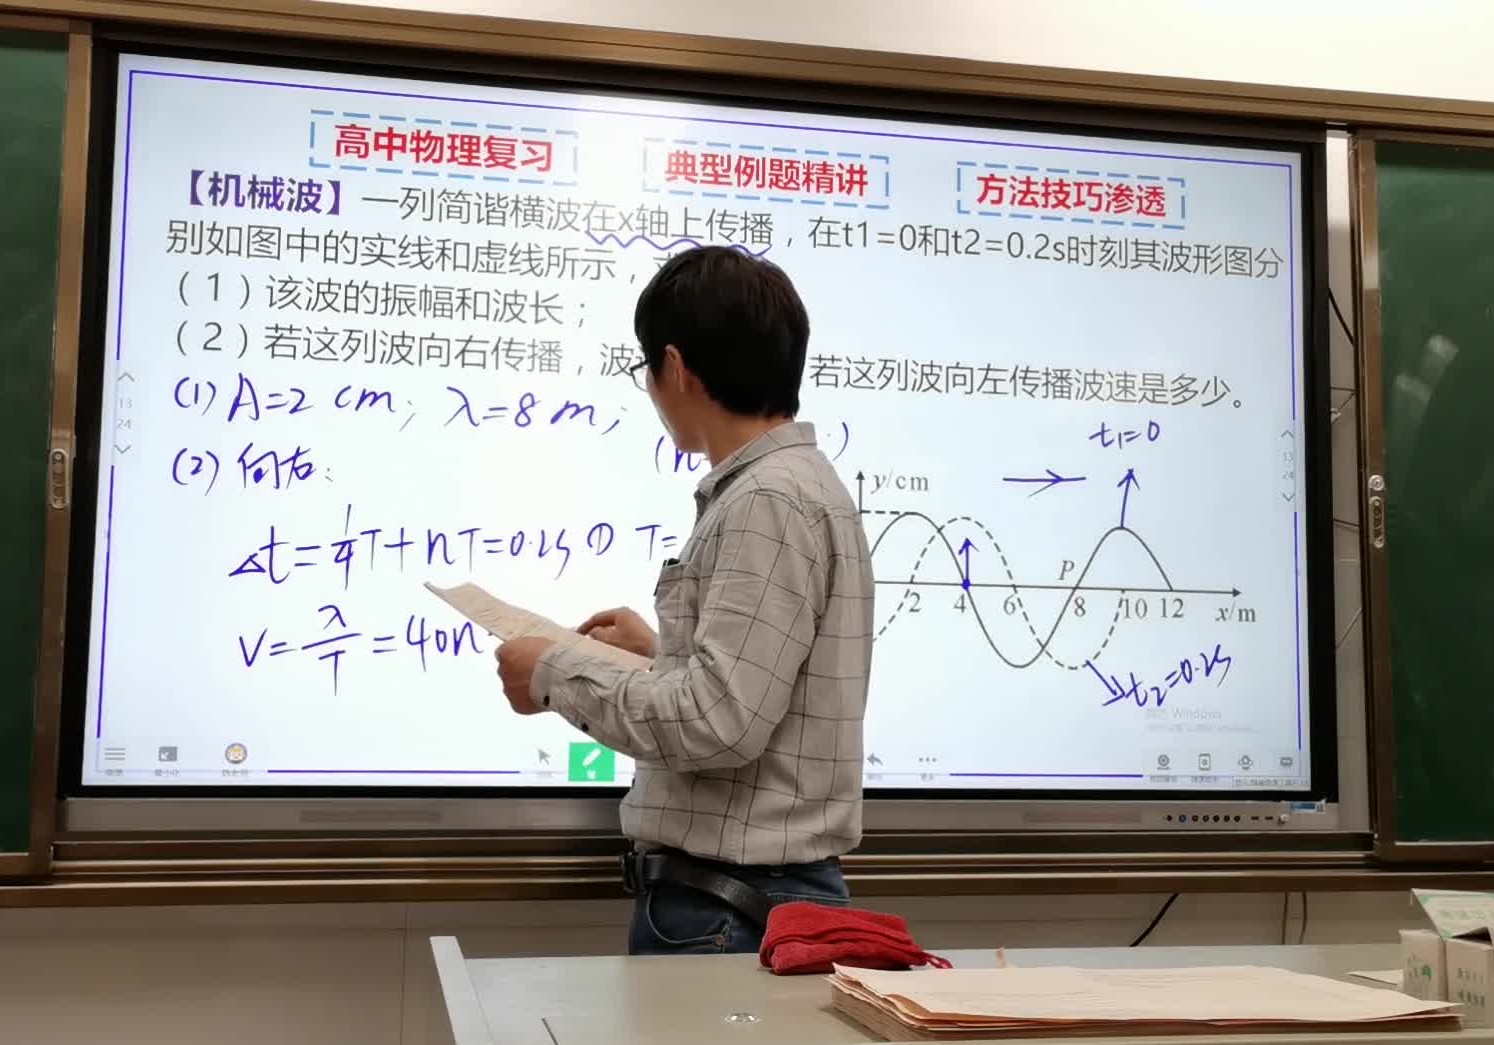 高中物理复习
典型例题精讲
方法技巧渗透
【机械波】一列简谐横波在x轴上传播，在t1=0和t2=0.2s时刻其波形图分
别如图中的实线和虚线所示，
（1）该波的振幅和波长；
（2）若这列波向右传播，波 若这列波向左传播波速是多少。
(1) A=2 cm; λ=8 m;
(2) 向右:
(n )
Δt=1/4T+nT=0.2s ① T=
v=λ/T=40n
t₁=0
y/cm
P
2 4 6 8 10 12 x/m
t₂=0.2s
Windows
13
24
13
24